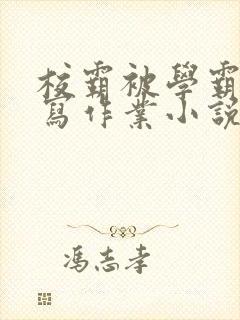 校霸被學霸
寫作業小說
馮志孝